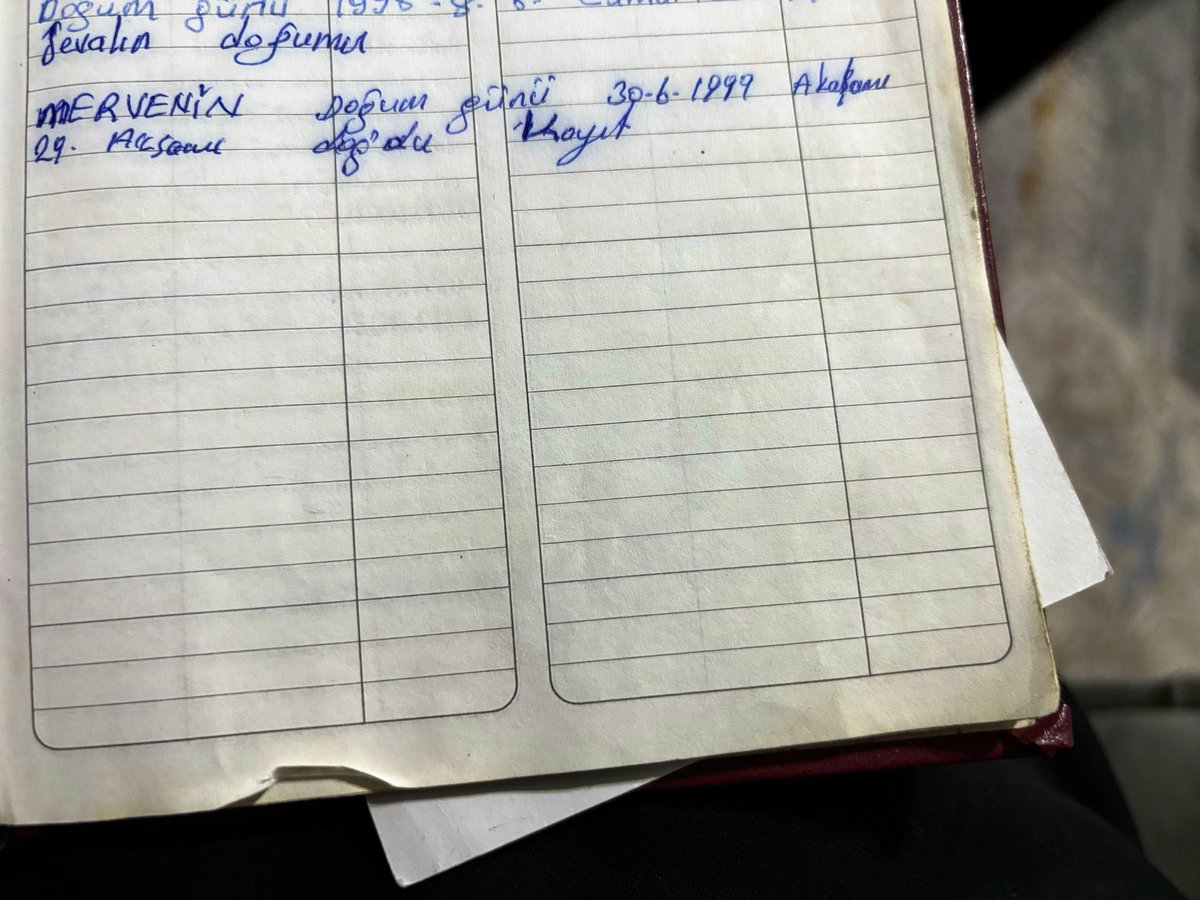 Doğum günü 1998-8-8-
Jevalın doğumu
MERVENİN Doğum günü 30-6-1999 Akşamı
29. Akşamı doğ'du Kayıt